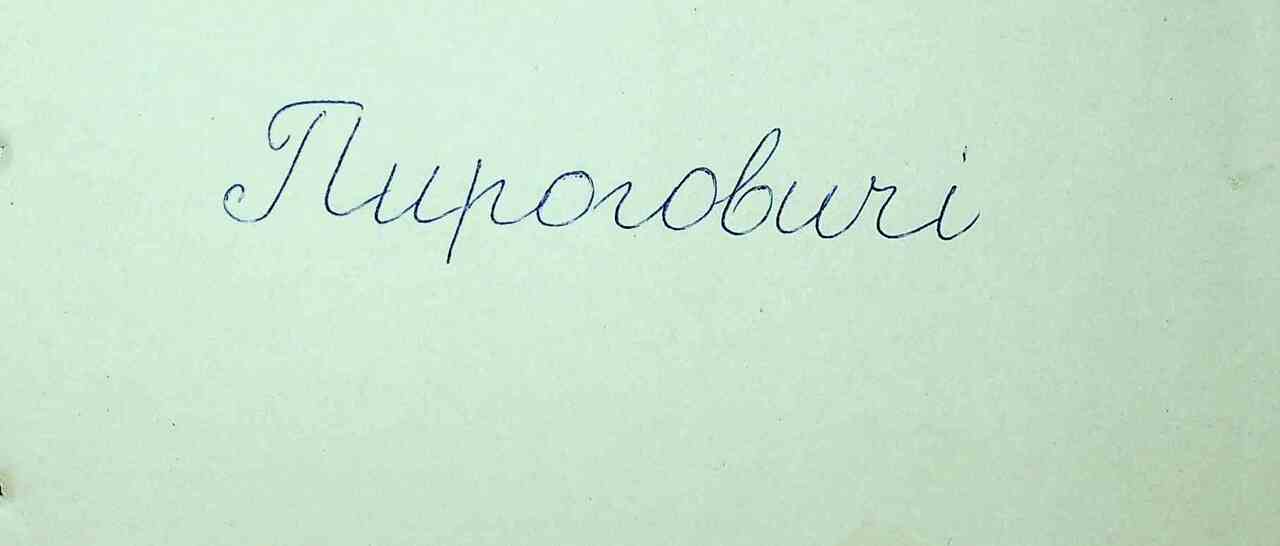 Пироговичі